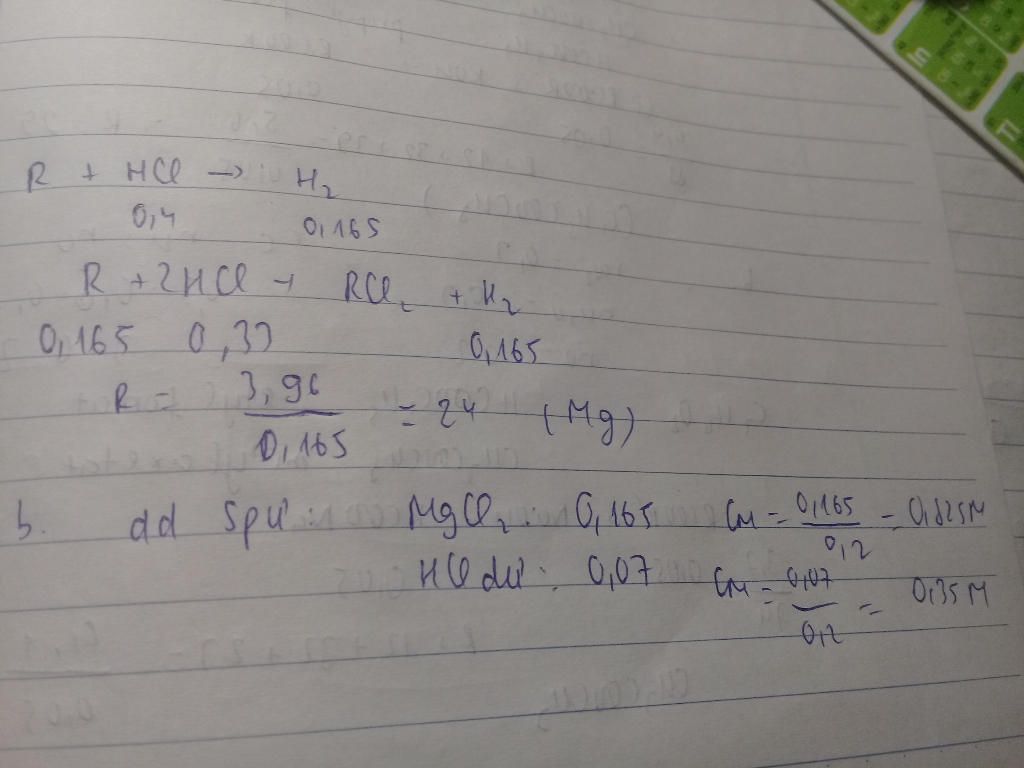 R + HCl → H₂
0,4 0,165
R + 2HCl → RCl₂ + H₂
0,165 0,33 0,165
R = 3,96 / 0,165 = 24 (Mg)
b. dd Spứ: MgCl₂: 0,165 CM = 0,165 / 0,2 = 0,825M
HCl dư: 0,07 CM = 0,07 / 0,2 = 0,35M